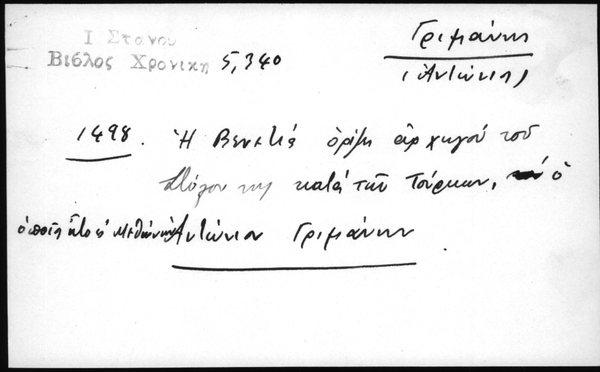 Ι Στανου
Βιβλος Χρονικη 5,340
Γριμάνης
(Ἀντώνιος)
1498. Ἡ Βενετιά ὁρίζει ἀρχηγόν τοῦ
στόλου της κατά τῶν Τούρκων, ὁ
ὁποῖος Ἀντώνιον Γριμάνην